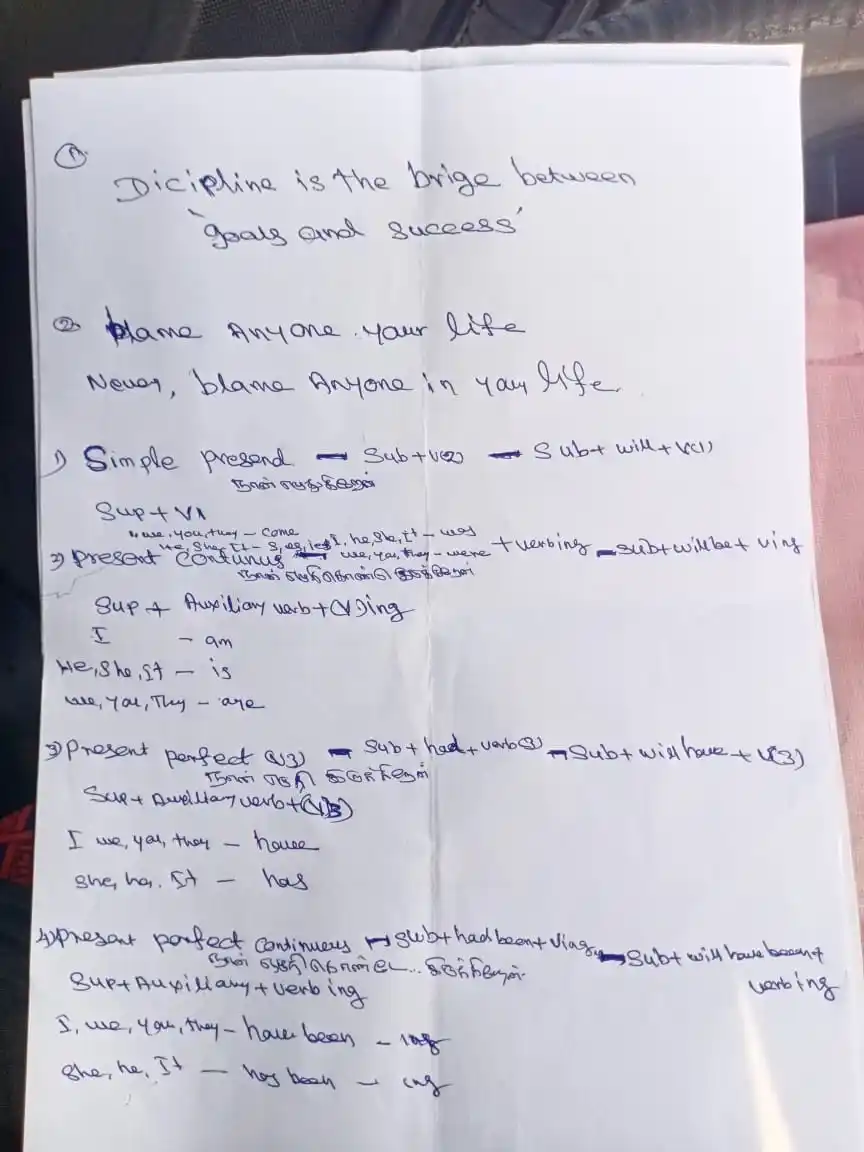 ①
Dicipline is the brige between
'goals and success'
② blame Anyone your life
Never, blame Anyone in your life.
1) Simple presend - Sub+V(2) - Sub+ will + V(1)
நான்
Sup + V1
we, you, they - come
He, She, It - s, es, ies I, he, She, It - was
2) Present Continus - we, you, they - were + verbing - sub+will be + ving
நான்
Sup + Auxiliary verb + (V)ing
I - am
He, She, It - is
We, You, They - are
3) Present perfect (V3) - Sub + had + verb(3) - Sub + will have + V(3)
நான்
Sup + Auxiliary verb + (V3)
I we, you, they - have
She, he, It - has
4) Present perfect continuous - Sub+had been+ Ving - Sub+ will have been+
verbing
நான்
Sup + Auxillary + verb ing
I, we, you, they - have been - ing
She, he, It - has been - ing